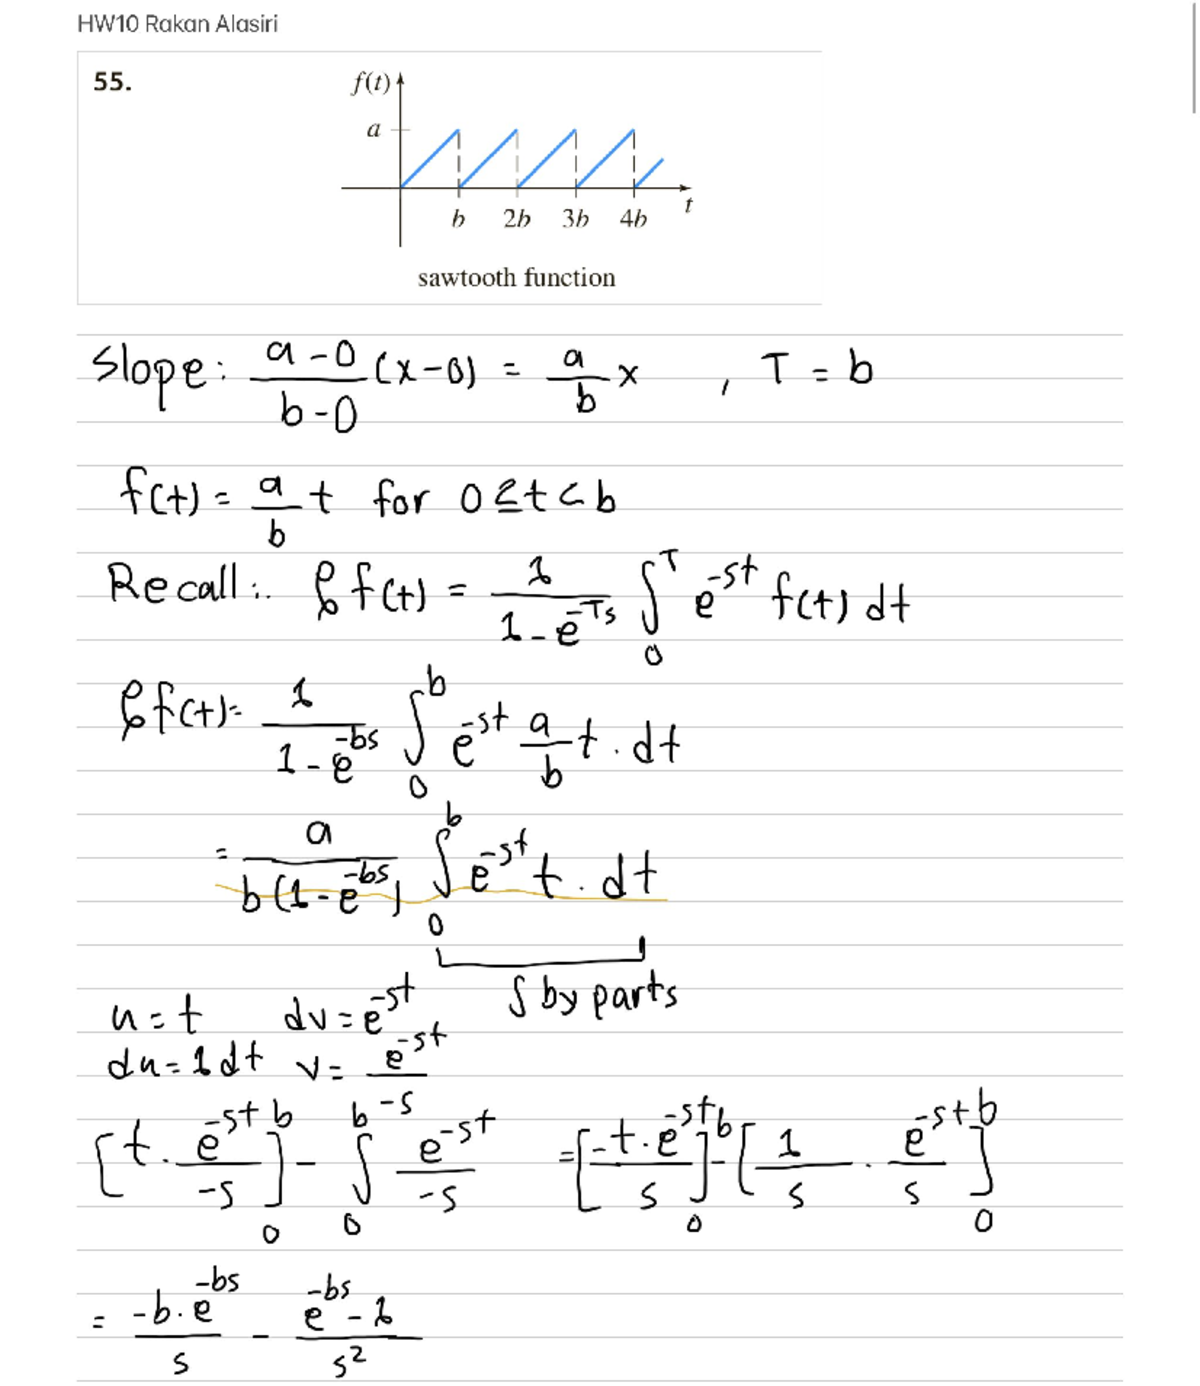 HW10 Rakan Alasiri
55.
f(t)
a
b 2b 3b 4b t
sawtooth function
Slope: \frac{a-0}{b-0}(x-0) = \frac{a}{b}x , T = b
f(t) = \frac{a}{b}t for 0≤t<b
Recall:. ℒf(t) = \frac{1}{1-e^{-Ts}} ∫_0^T e^{-st} f(t) dt
ℒf(t)= \frac{1}{1-e^{-bs}} ∫_0^b e^{-st} \frac{a}{b}t.dt
= \frac{a}{b(1-e^{-bs})} ∫_0^b e^{-st} t.dt
∫ by parts
u=t dv=e^{-st}
du=1dt v= \frac{e^{-st}}{-s}
[t.\frac{e^{-st}}{-s}]_0^b - ∫_0^b \frac{e^{-st}}{-s} =[\frac{-t.e^{-st}}{s}]_0^b-[\frac{1}{s}.\frac{e^{-st}}{s}]_0^b
= \frac{-b.e^{-bs}}{s} - \frac{e^{-bs}-1}{s^2}